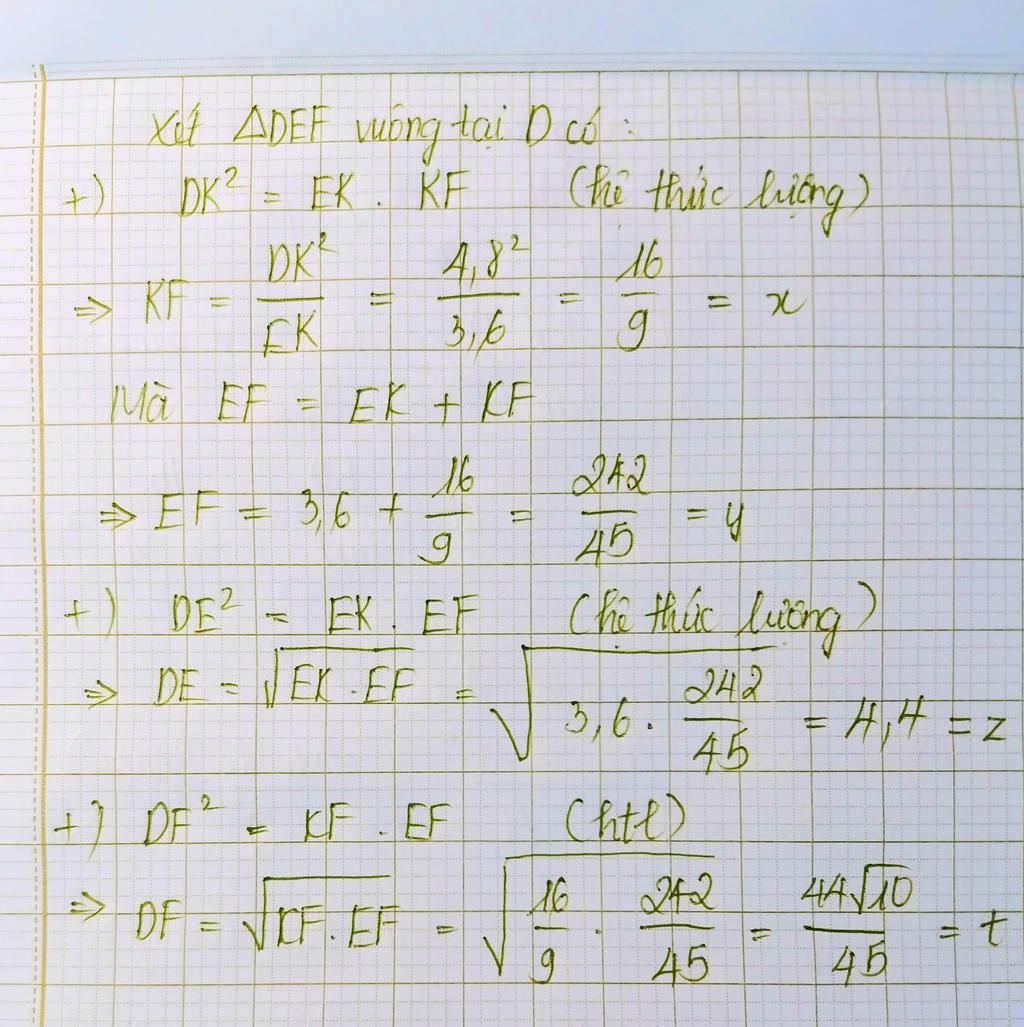 Xét ΔDEF vuông tại D có :
+) DK² = EK . KF (hệ thức lượng)
⇒ KF = DK²/EK = 4,8²/3,6 = 16/9 = x
Mà EF = EK + KF
⇒ EF = 3,6 + 16/9 = 242/45 = y
+) DE² = EK . EF (hệ thức lượng)
⇒ DE = √(EK . EF) = √(3,6 . 242/45) = 4,4 = z
+) DF² = KF . EF (htl)
⇒ DF = √(KF . EF) = √(16/9 . 242/45) = 44√10/45 = t